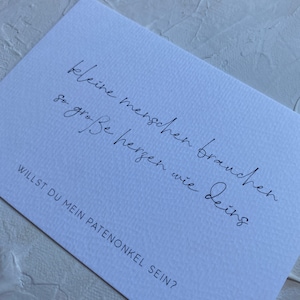 kleine menschen brauchen
so große herzen wie deins
WILLST DU MEIN PATENONKEL SEIN?